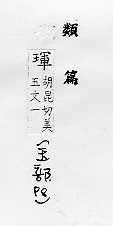 類篇
琿胡昆切美
玉文一
(玉部P8)